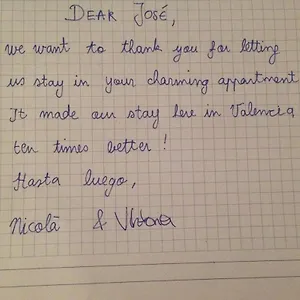 DEAR JOSÉ,
we want to thank you for letting
us stay in your charming appartment
It made our stay here in Valencia
ten times better!
Hasta luego,
Nicolà &